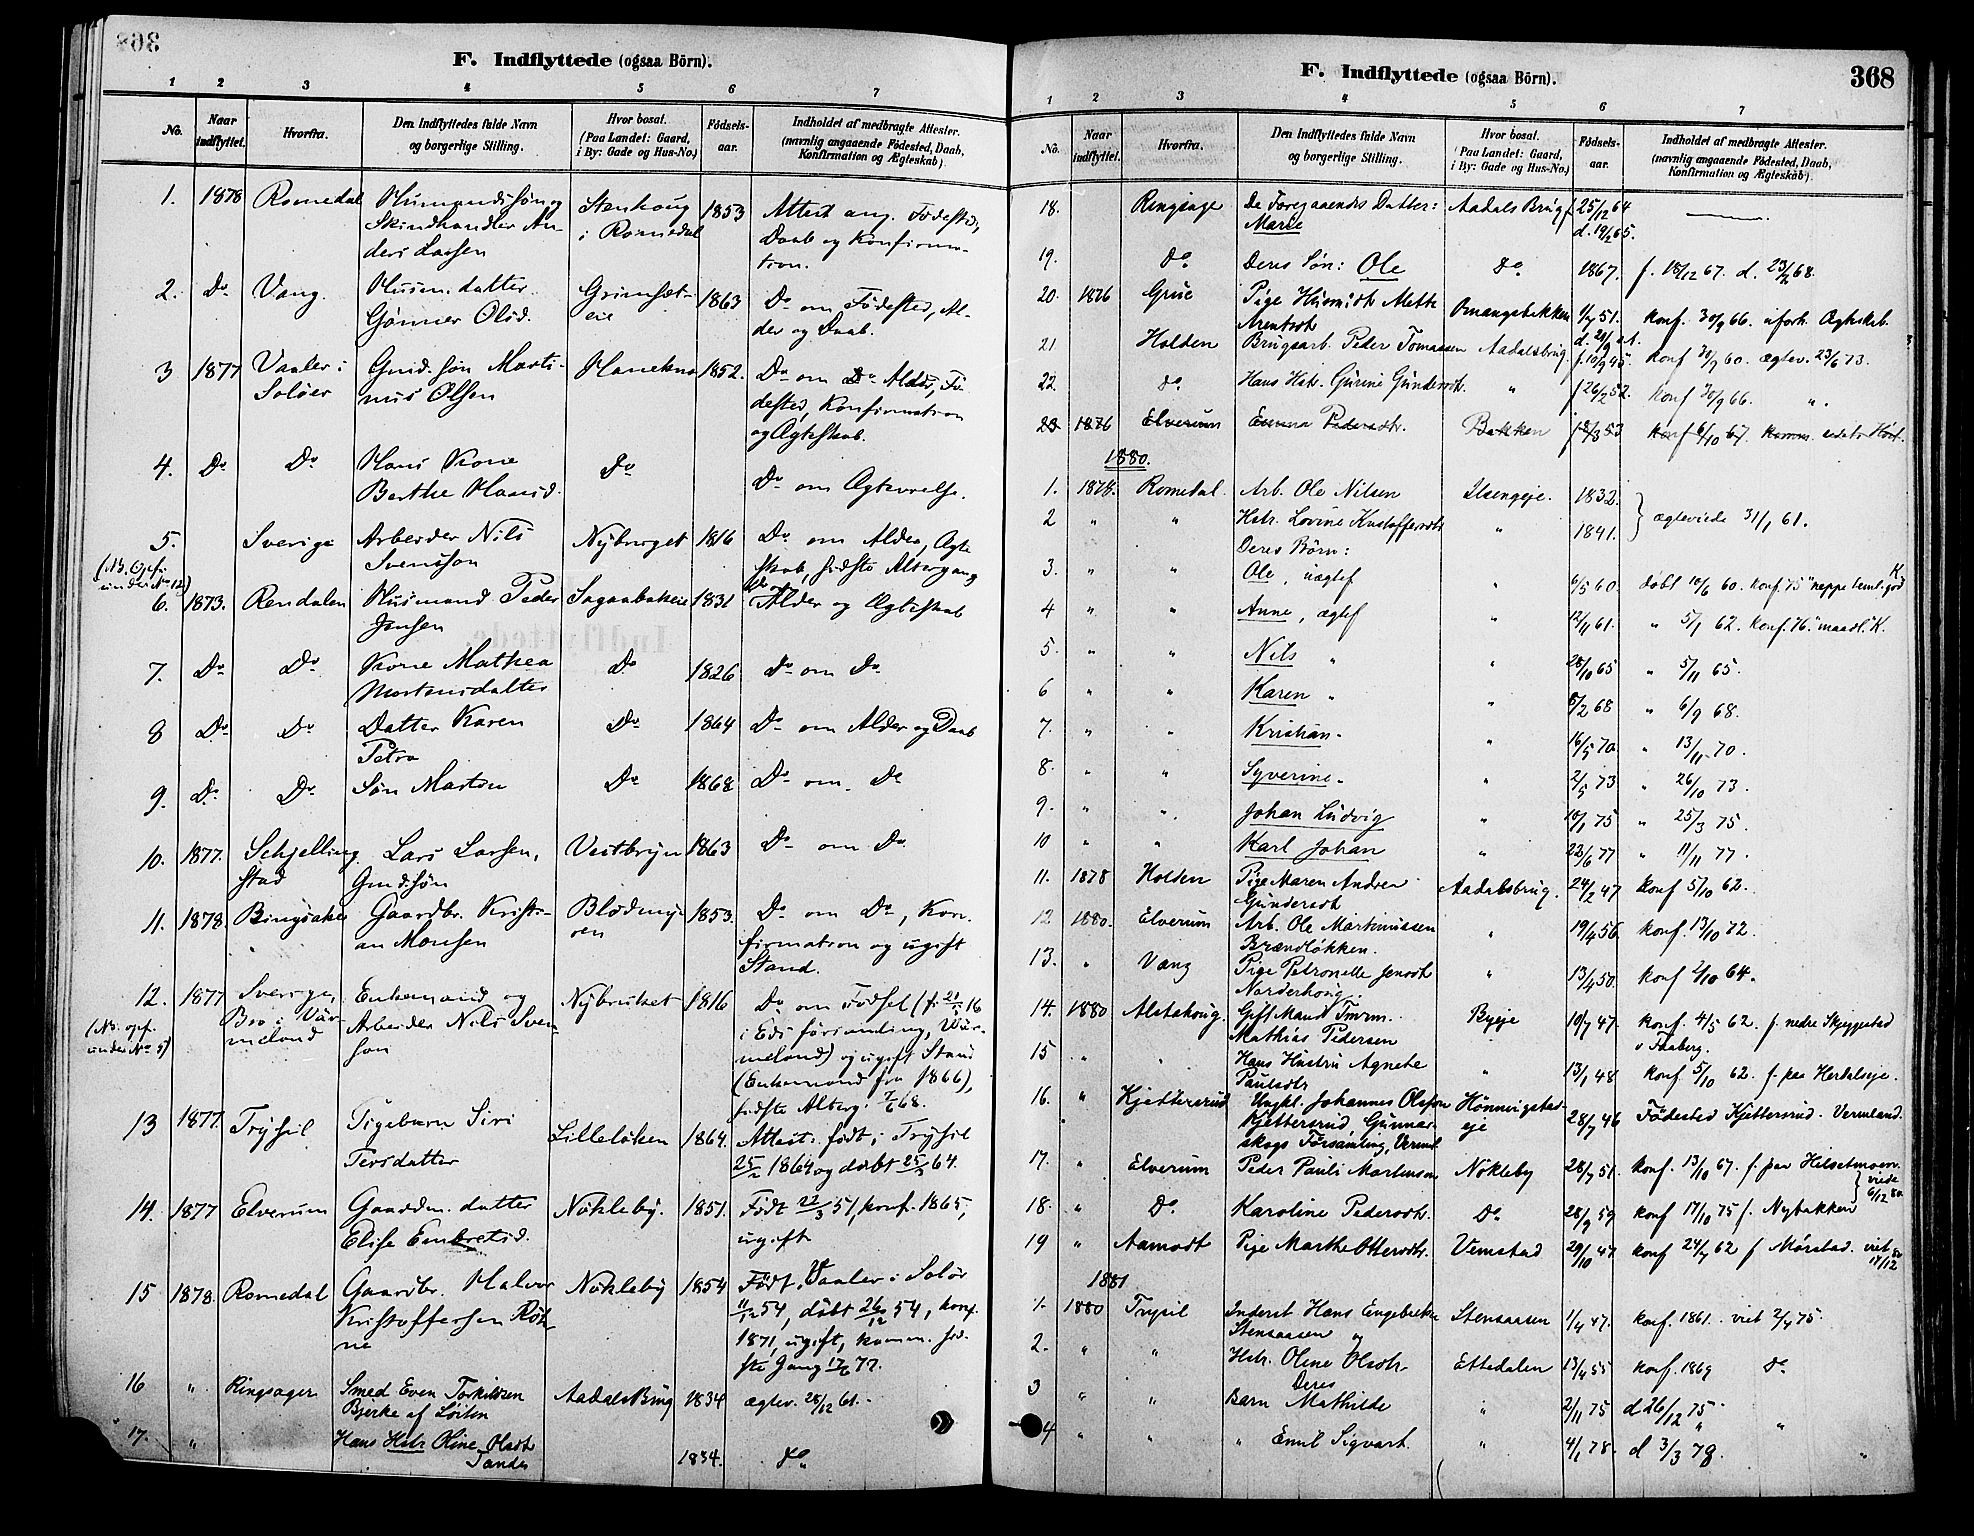 368
F. Indflyttede (ogsaa Börn).
1 2 3 4 5 6 7
No. Naar indflyttet. Hvorfra. Den Indflyttedes fulde Navn og borgerlige Stilling. Hvor bosat. (Paa Landet: Gaard, i By: Gade og Hus-No.) Fødsels-aar. Indholdet af medbragte Attester. (navnlig angaaende Fødested, Daab, Konfirmation og Ægteskab).
1. 1878 Romedal Husmandssøn og Stenhoug 1853 Attest ang. Fødested,
Skindhandler An- i Romedal Daab og Konfirma-
ders Larsen tion.
2. Do Vang. Husm. datter Grimsæt- 1863 Do om Fødested, Al-
Gønner Olsd. eie der og Daab.
3 1877 Vaaler i Gmd. søn Marti- 1852. Do om Do Alder, Fø-
Soløer nus Olsen dested, Konfirmation
og Ægteskab.
4. Do Do Hans Kone Do Do om Ægtevielse.
Berthe Hansd.
5. Sverige Arbeider Nils Nybruget 1816 Do om Alder, Ægte
(NB. Opf. Svensson skab, sidste Altergang
under No 12)
6. 1873. Rendalen Husmand Peder 1831 Alder og Ægteskab
Jensen
7. Do Do Kone Mathea Do 1826 Do om Do
Mortensdatter
8 Do Do Datter Karen Do 1864 Do om Alder og Daab
Petra
9. Do Do Søn Morten Do 1868 Do om Do
10. 1877. Schjelling Lars Larsen, Vestbryn 1863 Do om Do
stad Gmdsøn
11. 1878. Ringsaker Gaardbr. Kristi- 1853. Do om Do, Kon-
an Monsen firmation og ugift
Stand.
12. 1877 Sverige, Enkemand og Nybruket 1816 Do om Fødsel (f. 21/1 16
(NB. opf. Bro i Vär- Arbeider Nils Sven- i Eds församling, Wär-
under No 5) meland son meland) og ugift Stand
(Enkemand fra 1866),
sidste Alterg. 7/6 68.
13 1877. Trysil Pigebarn Siri Lilleløken 1864. Attest: født i Trysil
Persdatter 25/2 1864 og døbt 25/3 64.
14. 1877 Elverum Gaardm. datter Nökleby. 1851. Født 22/3 51, konf. 1865,
Elise Embretsd. ugift
15 1878. Romedal Gaardbr. Halvor Nökleby 1854 Født i Vaaler i Solør
Kristoffersen Røk- 11/12 54, døbt 26/12 54, konf.
ne 1871, ugift, komm. sid-
ste Gang 17/6 77.
16 " Ringsager Smed Even Torkildsen Aadals Brug 1834 ægtev. 28/12 61.
Bjerke af Løiten
17. " Hans Hstr. Oline Olsdt 1834. do
Tande
368
F. Indflyttede (ogsaa Börn).
1 2 3 4 5 6 7
No. Naar indflyttet. Hvorfra. Den Indflyttedes fulde Navn og borgerlige Stilling. Hvor bosat. (Paa Landet: Gaard, i By: Gade og Hus-No.) Fødsels-aar. Indholdet af medbragte Attester. (navnlig angaaende Fødested, Daab, Konfirmation og Ægteskab).
18. Ringsage De Foregaaendes Datter: Aadals Brug f. 25/12 64
Marie d. 19/2 65.
19. do Deres Søn: Ole do 1867. f. 18/12 67. d. 23/2 68.
20. 1876 Grue Pige Husmdtr Mette 1/7 51. konf. 30/9 66. uforh. Ægtskab.
Arentsdt
21 Holden Brugsarb. Peder Tomassen Aadalsbrug f. 10/9 45. konf 30/9 60. ægtev. 23/6 73.
22 do. Hans Hstr. Gurine Gundersdt. " f 26/2 52. konf 30/9 66. ".
23 1876 Elverum Emma Pedersdtr. Bakken f 18/8 53 konf 6/10 67. komm. sidste Høst.
1880.
1. 1878. Romedal. Arb. Ole Nilsen Ilsengeje. 1832. ægteviede 31/1 61.
2 " " Hstr. Lovine Kristoffersdt " 1841.
Deres Börn:
3. " " Ole, uægtef " 6/5 60. døbt 10/6 60. konf 75 "neppe temt. god K.
4 " " Anne, ægtef " 12/11 61. " 5/1 62. konf. 76. "maadl." K.
5. " " Nils " " 28/10 65 " 5/11 65.
6 " " Karen " " 8/2 68 " 6/9 68.
7. " " Kristian " " 16/5 70 " 13/11 70.
8. " " Syverine " " 2/5 73 " 26/10 73.
9. " " Johan Ludvig " 10/1 75 " 25/3 75.
10 " " Karl Johan " 22/6 77 " 11/11 77.
11. 1878 Holden Pige Maren Andrea Aadalsbrug. 24/2 47 konf 5/10 62.
Gundersdt
12. 1880. Elverum Arb. Ole Martinussen " 19/4 56. konf. 13/10 72.
Brændløkken.
13. " Vang Pige Petronelle Jensdt " 13/4 50. konf 2/10 64.
Norderhoug.
14. 1880 Alstahoug. Gift Mand Tmrm. Byeje 10/7 47. konf. 4/5 62. f. nedre Skjeggestad
Mathias Pedersen v Faaberg.
15 " " Hans Hustru Agnete " 13/1 48 konf. 5/10 62. f. paa Herdalseje.
Paulsdtr
16. " Kjettersrud Ungkl. Johannes Olsson 28/7 46 Fødested Kjettersrud. Vermland.
Kjettersrud, Gunnar- eje
skogs Församling, Verml.
17. " Elverum Peder Pauli Martinsen Nökleby 28/7 51. konf. 13/10 67. f. paa Helsetmoen. viede 6/12 80.
18. " Do Karoline Pedersdt. Do 28/9 59 konf 17/10 75 f. Nybakken
19 " Aamodt Pige Marthe Ottersdtr. Vemstad 29/10 47 konf 24/7 62 f Mørstad. viet 19/12 80
1881
1. 1880 Trysil Inderst Hans Engebretsen Stensaasen 1/4 47. konf. 1861. viet 2/4 75.
Stensaasen og
2. " " Hstr. Oline Olsdtr. Ettedalen 13/4 55 konf. 1869 Do
Deres
3 " " Barn Mathilde " 2/11 75 d 26/12 75.
4 " " " Emil Sigvart. " 4/1 78. d 3/3 78.